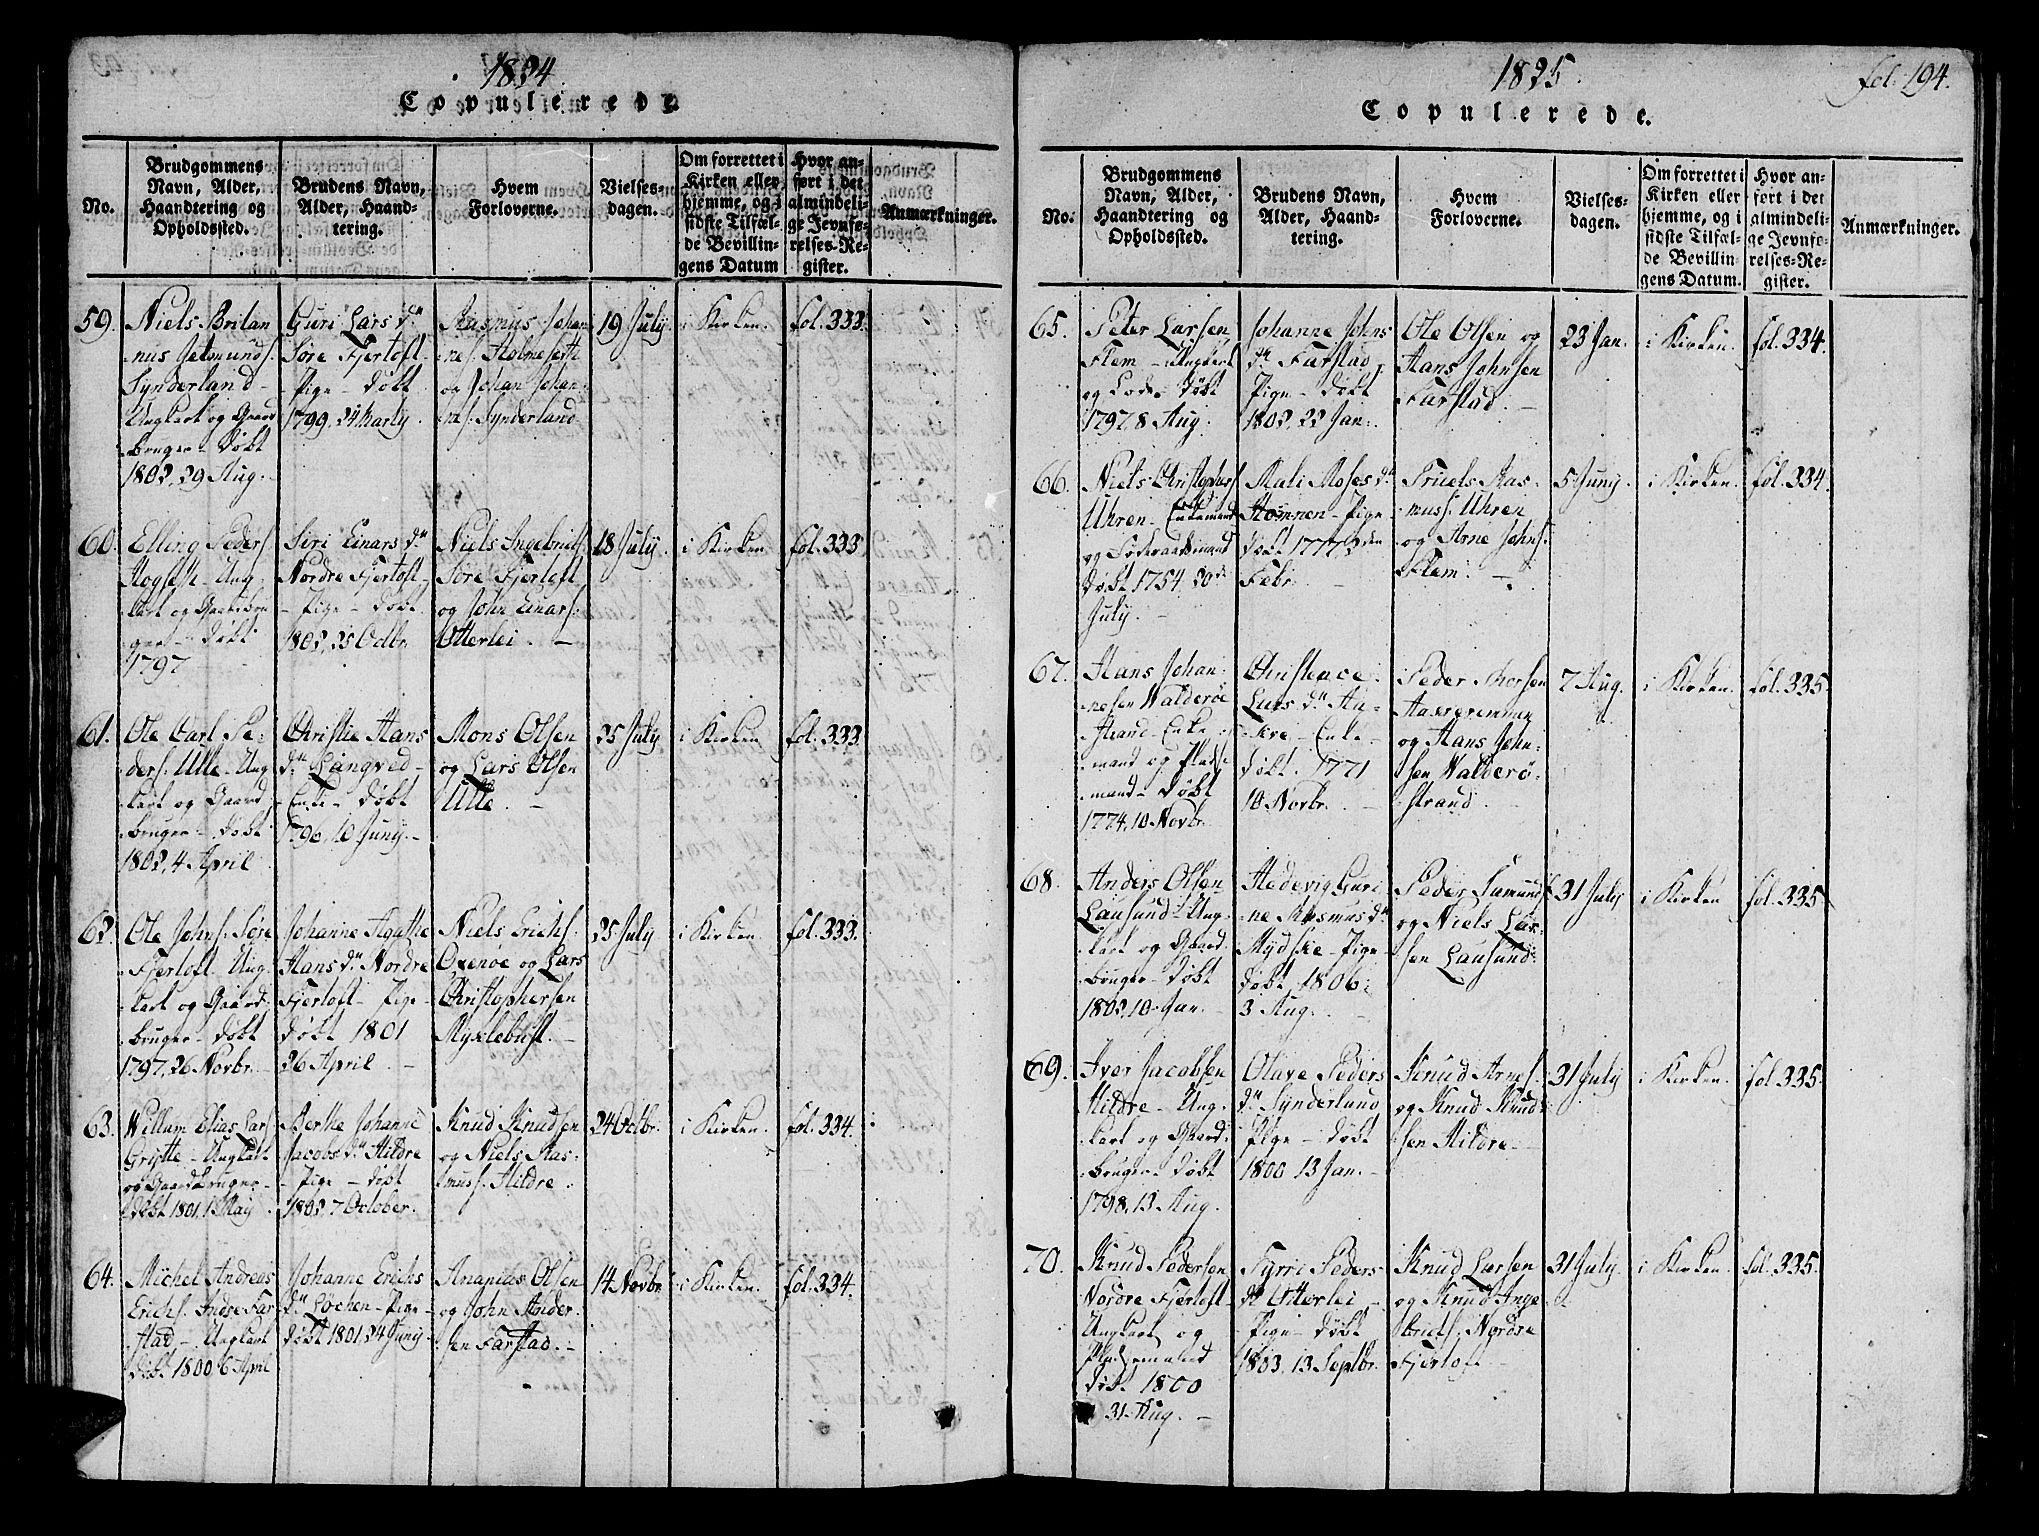 1824.
Copulerede.
No.
Brudgommens
Navn, Alder,
Haandtering og
Opholdssted.
Brudens Navn,
Alder, Haand-
tering.
Hvem
Forloverne.
Vielses-
dagen.
Om forrettet i
Kirken eller
hjemme, og i
sidste Tilfæl-
de Bevillin-
gens Datum
Hvor an-
ført i det
almindeli-
ge Jevnfø-
relses-Re-
gister.
Anmærkninger.
59.
Niels Britan
nus Jetmunds.
Synderland -
Ungkarl og Gaard
bruger - døbt
1802, 29 Aug.
Guri Lars dr
Søre Fjertoft -
- Pige - døbt
1799, 24 Marty
Rasmus Johan
nes. Holmeseth
og Johan Johan-
nes. Synderland
19 July
i Kirken.
fol. 333.
60.
Elling Peders.
Rogseth - Ung
karl og Gaardbru
ger - døbt
1797
Siri Einars dr
Nordre Fjertoft -
- Pige - døbt
1802, 25 Octbr.
Niels Ingebrits.
Søre Fjertoft
og John Einars.
Otterlei. -
18 July
i Kirken
fol. 333
61.
Ole Carl Pe-
ders. Ulle - Ung
karl og Gaard
bruger - døbt
1802, 4 April
Christie Hans
dr Langved -
- Enke - døbt
1796, 10 Juny. -
Mons Olsen
og Lars Olsen
Ulle. -
25 July
i Kirken
fol. 333.
62.
Ole Johns. Søre
Fjertoft. Ung-
karl og Gaard-
bruger - døbt
1797, 26 Novbr. -
Johanne Agathe
Hans dr Nordre
Fjertoft - Pige -
døbt 1801
26 April -
Niels Erichs.
Oxenøe og Lars
Christophersen
Myklebust. -
25 July
i Kirken.
fol. 333.
63.
Willum Elias Lars.
Gristte - Ungkarl
og Gaardbruger -
døbt 1801, 1 May
Berthe Johanne
Jacobs dr Hildre
- Pige - døbt
1802, 7 October.
Knud Knudsen
og Niels Ras-
mus. Hildre.
24 Octbr.
i Kirken.
fol. 334.
64.
Michel Andreas
Erichs. Indre Far
stad - Ungkarl
døbt 1800 6 April
Johanne Erichs
dr Løchen - Pige -
døbt 1801, 24 Juny
Ananias Olsen
og John Ander-
sen Farstad. -
14 Novbr
i Kirken.
fol. 334.
1825.
fol. 194.
Copulerede.
No.
Brudgommens
Navn, Alder,
Haandtering og
Opholdssted.
Brudens Navn,
Alder, Haand-
tering.
Hvem
Forloverne.
Vielses-
dagen.
Om forrettet i
Kirken eller
hjemme, og i
sidste Tilfæl-
de Bevillin-
gens Datum.
Hvor an-
ført i det
almindeli-
ge Jevnfø-
relses-Re-
gister.
Anmærkninger.
65.
Peter Larsen
Flem - Ungkarl
og Lods - døbt
1797 8 Aug.
Johanne Johns
dr Farstad,
Pige - døbt
1802, 22 Jan.
Ole Olsen og
Hans Johnsen
Farstad. -
23 Jan.
i Kirken.
fol. 334.
66.
Niels Christophers.
Uhren - Enkemand
og Føderaadsmand
døbt 1754, 30te
July. -
Mali Moses dr
Homnen - Pige -
døbt 1777 den
Febr. -
Truels Ras-
mus. Uhren
og Arne Johns.
Flem. -
5 Juny
i Kirken.
fol. 334.
67.
Hans Johan-
nesen Walderøe
strand - Enke
mand og Plads-
mand - døbt
1774, 10 Novbr.
Christence
Lars dr Au-
- Enke -
døbt. 1771
10 Novbr. -
Peder
og Hans John-
sen Walderø-
strand. -
7 Aug.
i Kirken.
fol. 335.
68.
Anders Olsen
Lausund - Ung-
karl og Gaard-
bruger - døbt
1802, 10 Jan. -
Hedevig Guri-
ne Rasmus dr
Mydske - Pige -
døbt, 1806.
3 Aug. -
Peder Samunds.
og Niels Lar-
sen Lausund.
31 July
i Kirken
fol. 335.
69.
Iver Jacobsen
Hildre - Ung-
karl og Gaard-
bruger - døbt
1798, 13 Aug.
Olave Peders
dr Synderland,
Pige - døbt
1800 13 Jan. -
Knud Arnes.
og Knud Knud-
sen Hildre. -
31 July
i Kirken.
fol. 335.
70.
Knud Pedersen
Nordre Fjertoft -
Ungkarl og
Pladsemand
døbt 1800
31 Aug. -
Synni Peders-
dr Otterlei -
- Pige - døbt
1803, 13 Septbr.
Knud Larsen
og Knud Inge
brits. Nordre
Fjertoft. -
31 July.
i Kirken.
fol. 335.